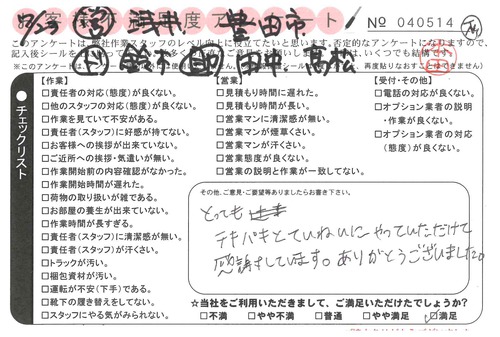 お客様満足度アンケート
8/23 営 浅井. 豊田市
No 040514
このアンケートは、弊社作業スタッフのレベル向上に役立てたいと思います。否定的なアンケートになりますので、
ド 鈴木 助 田中、高松
【作業】
□責任者の対応(態度)が良くない。
□他のスタッフの対応(態度)が良くない。
□作業を見ていて不安がある。
□責任者(スタッフ)に好感が持てない。
□お客様への挨拶が出来ていない。
□ご近所への挨拶・気遣いが無い。
□作業開始前の内容確認がなかった。
□作業開始時間が遅れた。
□荷物の取り扱いが雑である。
□お部屋の養生が出来ていない。
□作業時間が長すぎる。
□責任者(スタッフ)に清潔感が無い。
□責任者(スタッフ)が汗くさい。
□トラックが汚い。
□梱包資材が汚い。
□運転が不安(下手)である。
□靴下の履き替えをしてない。
□スタッフにやる気がみられない。
【営業】
□見積もり時間に遅れた。
□見積もり時間が長い。
□営業マンに清潔感が無い。
□営業マンが煙草くさい。
□営業マンが汗くさい。
□営業態度が良くない。
□営業の説明と作業が一致してない。
【受付・その他】
□電話の対応が良くない。
□オプション業者の説明
・作業が良くない。
□オプション業者の対応
(態度)が良くない。
チェックリスト
その他、ご意見・ご要望等ありましたらお書き下さい。
とっても
テキパキとていねいにやっていただけて
感謝しています。ありがとうございました。
☆当社をご利用いただきまして、ご満足いただけたでしょうか?
□不満 □やや不満 □普通 □やや満足 ☑満足